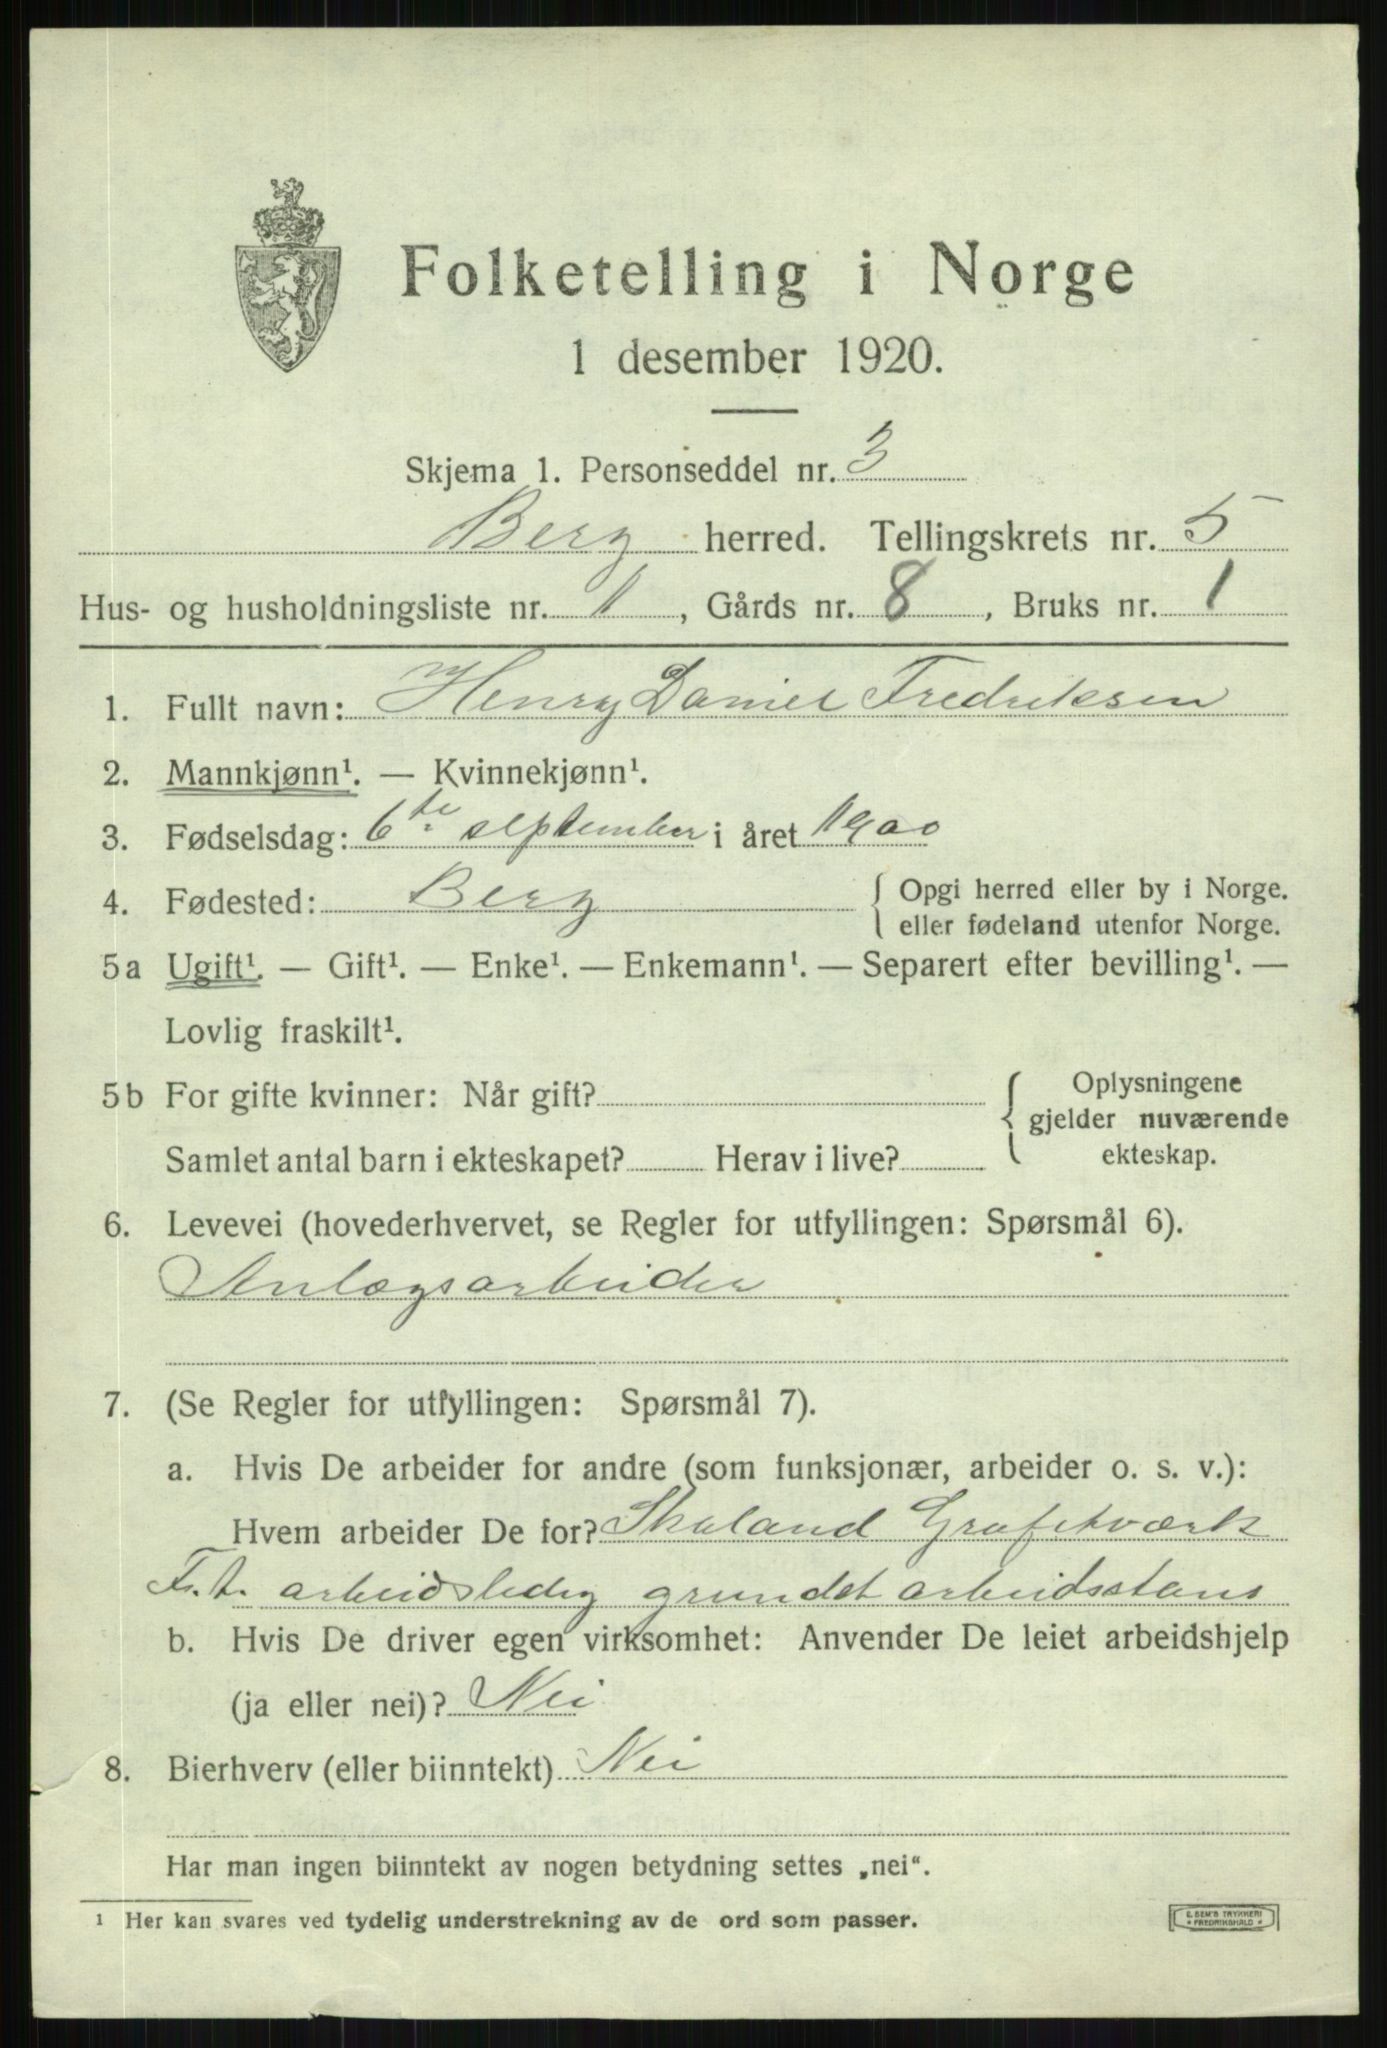 Folketelling i Norge
1 desember 1920.
Skjema 1. Personseddel nr. 3
Berg herred. Tellingskrets nr. 5
Hus- og husholdningsliste nr. 11, Gårds nr. 8, Bruks nr. 1
1. Fullt navn: Henry Daniel Fredriksen
2. Mannkjønn¹. — Kvinnekjønn¹.
3. Fødselsdag: 6te september i året 1900
4. Fødested: Berg { Opgi herred eller by i Norge.
eller fødeland utenfor Norge.
5a Ugift¹. — Gift¹. — Enke¹. — Enkemann¹. — Separert efter bevilling¹. —
Lovlig fraskilt¹.
5b For gifte kvinner: Når gift? { Oplysningene
gjelder nuværende
Samlet antal barn i ekteskapet? Herav i live? ekteskap.
6. Levevei (hovederhvervet, se Regler for utfyllingen: Spørsmål 6).
Anlægsarbeider
7. (Se Regler for utfyllingen: Spørsmål 7).
a. Hvis De arbeider for andre (som funksjonær, arbeider o. s. v.):
Hvem arbeider De for? Skaland Grafitværk
F.t. arbeidsledig grundet arbeidsstans
b. Hvis De driver egen virksomhet: Anvender De leiet arbeidshjelp
(ja eller nei)? Nei
8. Bierhverv (eller biinntekt) Nei
Har man ingen biinntekt av nogen betydning settes „nei“.
¹ Her kan svares ved tydelig understrekning av de ord som passer.
E. SEM'S TRYKKERI
* FREDRIKSHALD *